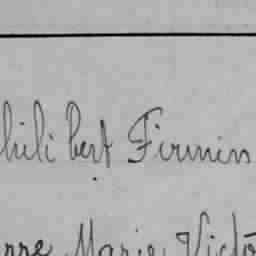 hilibert Firmin
nne Marie Victo